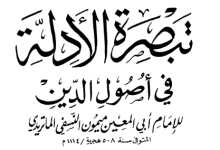 تبصرة الأدلة
في أصول الدين
للإمام أبي المعين ميمون النسفي الماتريدي
المتوفى سنة ٥٠٨ هجرية / ١١١٤م